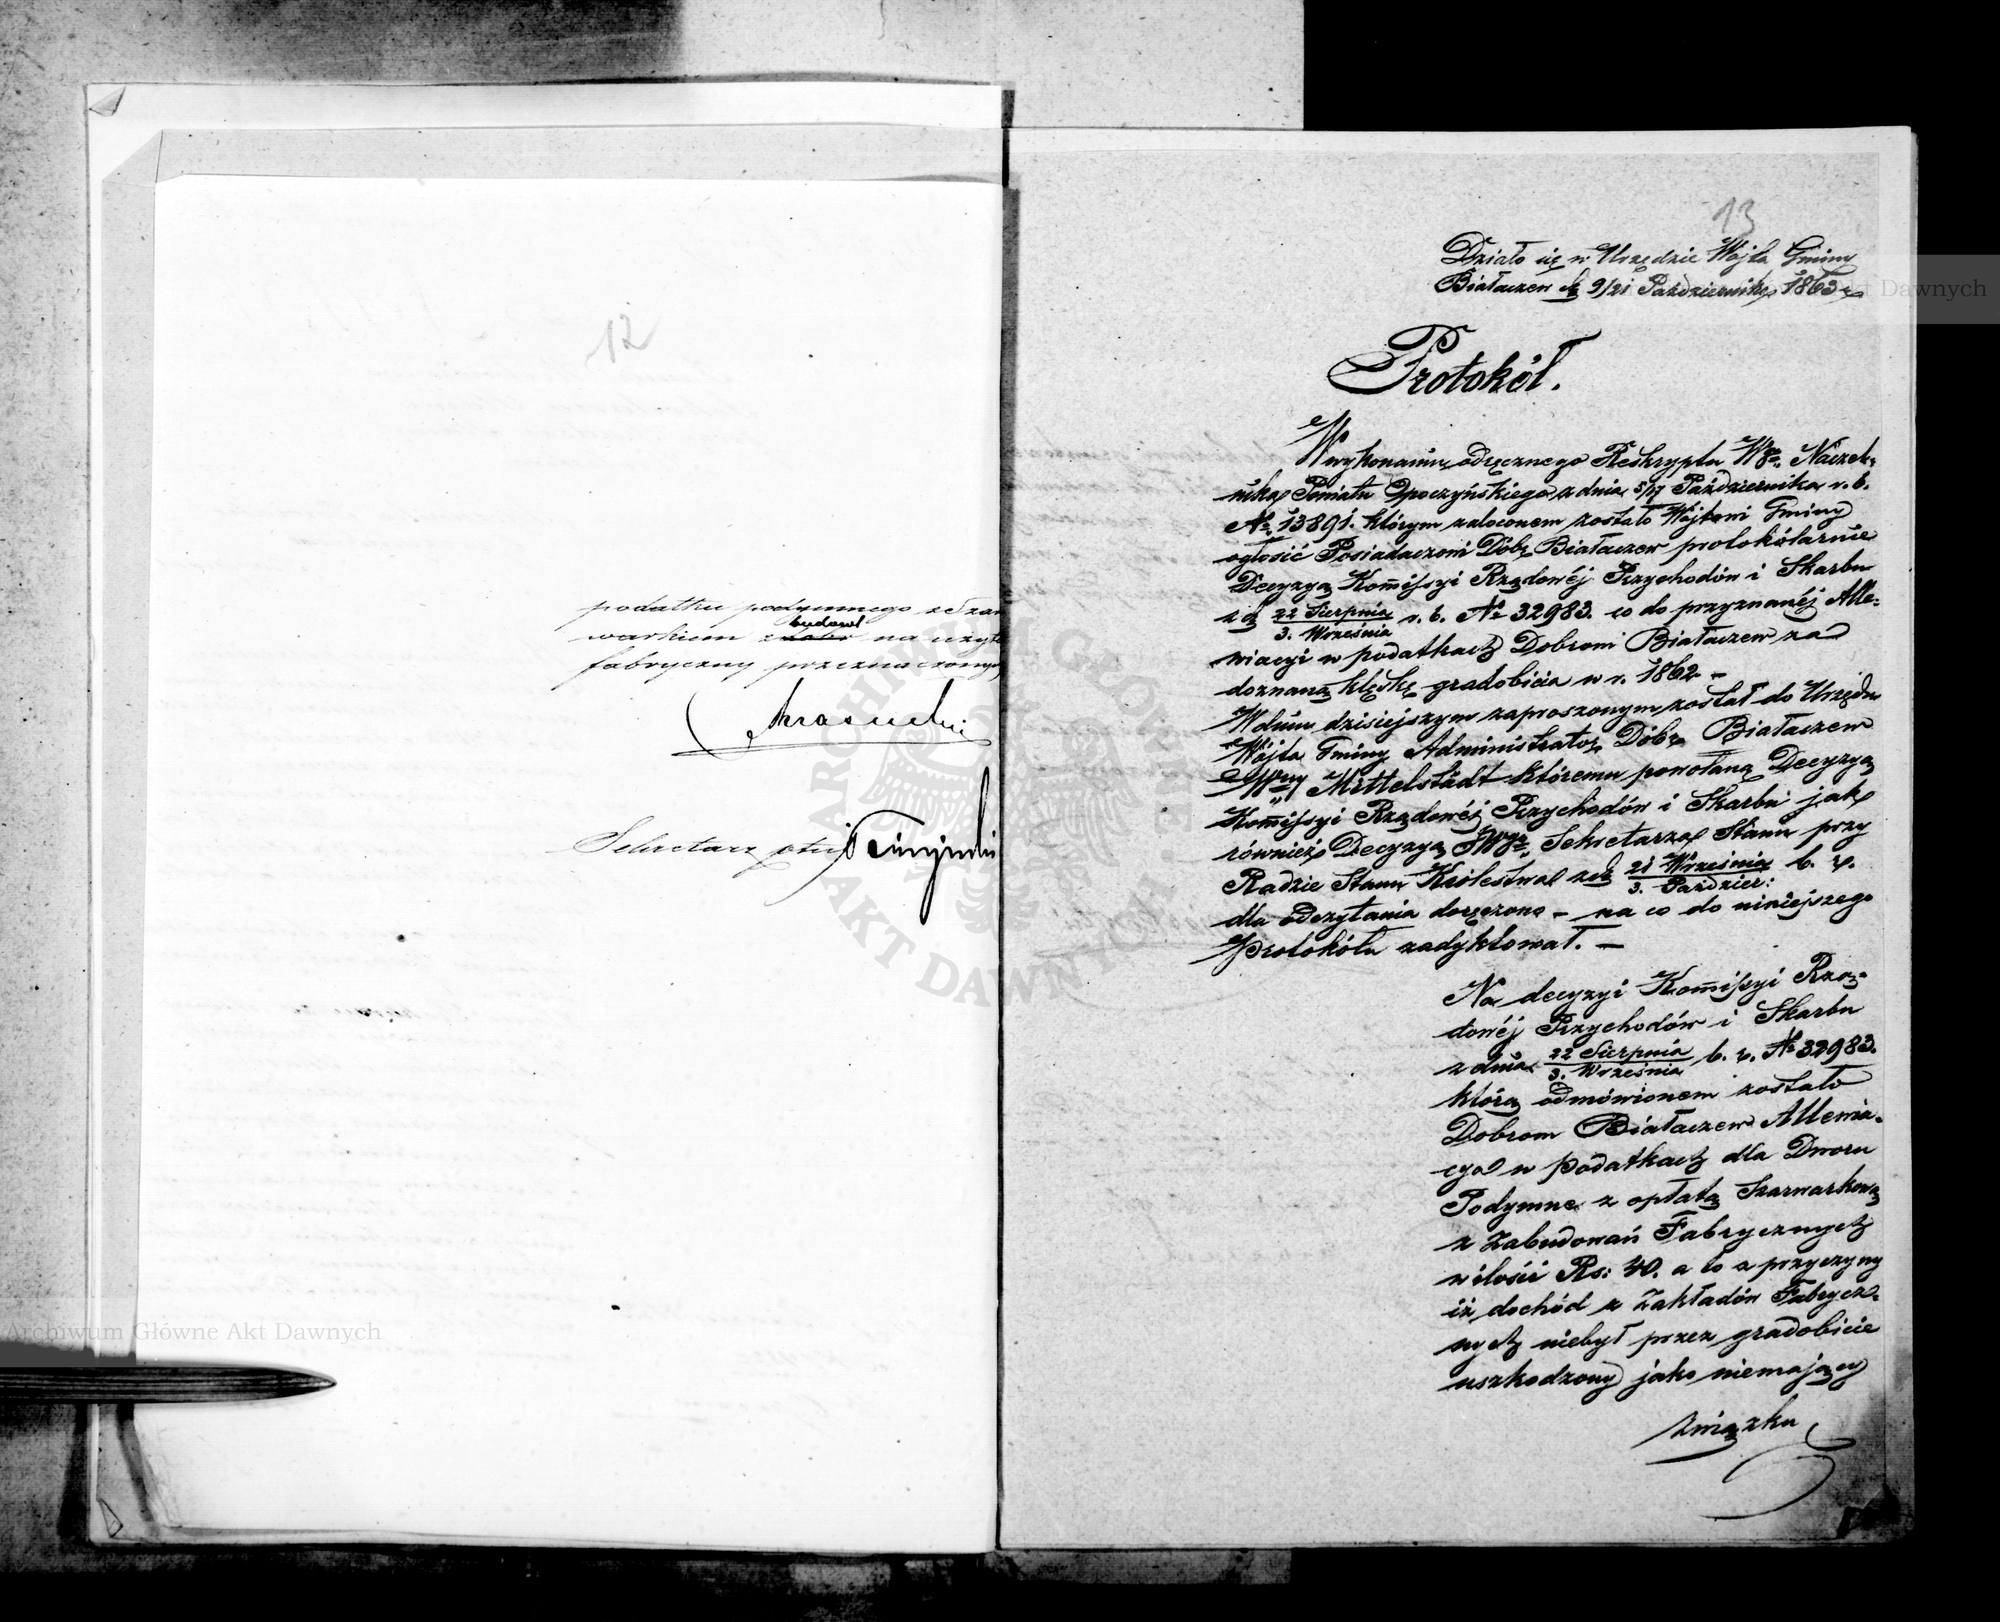 12
podatku podymnego ze szar
warkiem z budowl na użyt
fabryczny przeznaczonych
Krasuski
Sekretarz
13
Działo się w Urzędzie Wójta Gminy
Białaczew d. 9/21 Października 1863 r.
Protokół.
W wykonaniu odręcznego Reskryptu Wgo Naczel-
nika Powiatu Opoczyńskiego z dnia 5/17 Października r. b.
No 13891. którym zaleconem zostało Wójtowi Gminy
ogłosić Posiadaczowi Dóbr Białaczew protokólarnie
Decyzyą Kommissyi Rządowéj Przychodów i Skarbu
z d. 22 Sierpnia / 3. Września r. b. No 32983. co do przyznanéj Alle-
wiacyi w podatkach Dobrom Białaczew za
doznaną klęskę gradobicia w r. 1862 –
W dniu dzisiejszym zaproszonym został do Urzędu
Wójta Gminy Administrator Dóbr Białaczew
Wny Mittelstädt któremu powołaną Decyzyą
Kommissyi Rządowéj Przychodów i Skarbu jak
również Decyzyą JWgo Sekretarza Stanu przy
Radzie Stanu Królestwa z d. 21 Września / 3. Paździer: b. r.
dla odczytania doręczono – na co do niniejszego
Protokółu zadyktował. –
Na decyzyi Kommissyi Rzą-
dowéj Przychodów i Skarbu
z dnia 22 Sierpnia / 3. Września b. r. No 32983.
którą odmówionem zostało
Dobrom Białaczew Allewia-
cya w podatkach dla Dworu
Podymne z opłatą Szarwarkową
z Zabudowań Fabrycznych
w ilości Rs: 40. a to z przyczyny
iż dochód z Zakładów Fabrycz-
nych niebył przez gradobicie
uszkodzony jako niemający
związku
Archiwum Główne Akt Dawnych
ARCHIWUM GŁÓWNE AKT DAWNYCH
Akt Dawnych